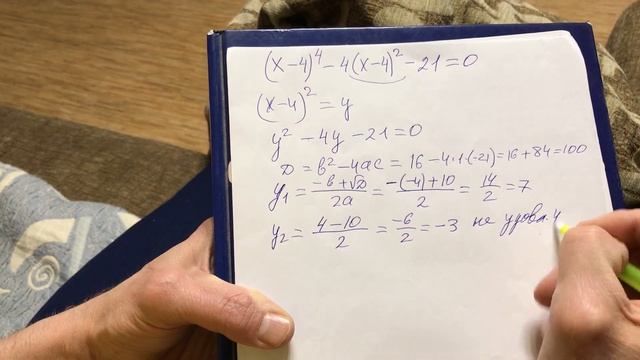 (x-4)⁴ - 4(x-4)² - 21 = 0
(x-4)² = y
y² - 4y - 21 = 0
D = b² - 4ac = 16 - 4·1·(-21) = 16 + 84 = 100
y₁ = (-b + √D)/2a = (-(-4) + 10)/2 = 14/2 = 7
y₂ = (4 - 10)/2 = -6/2 = -3 не удовл. у